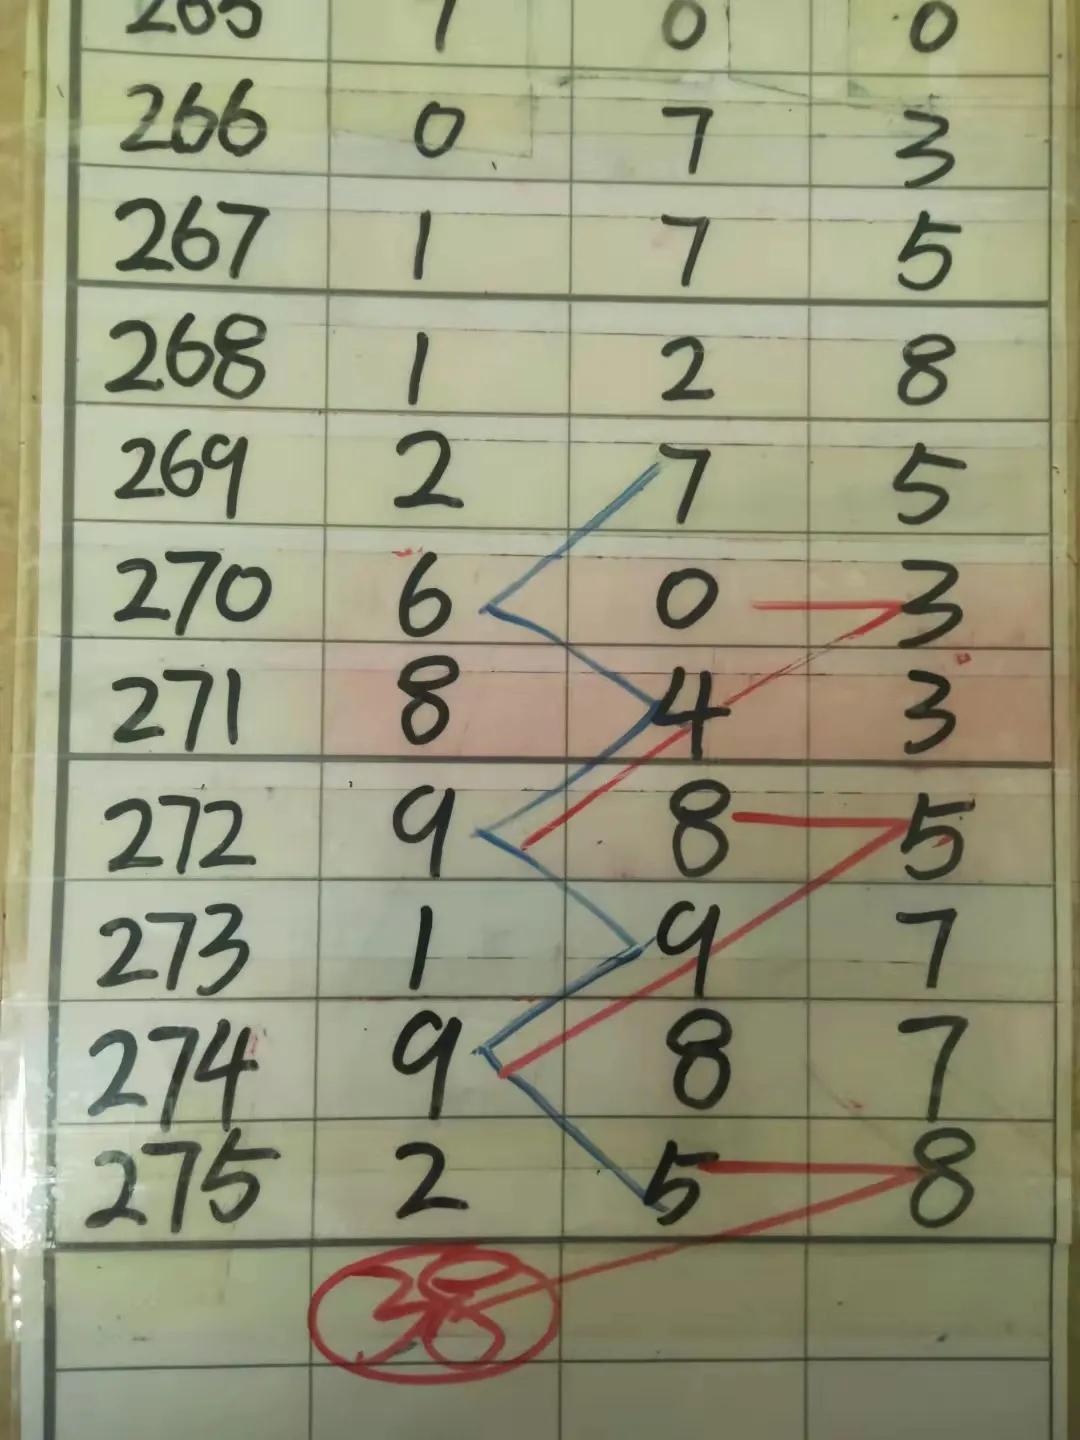 265 1 0 0
266 0 7 3
267 1 7 5
268 1 2 8
269 2 7 5
270 6 0 3
271 8 4 3
272 9 8 5
273 1 9 7
274 9 8 7
275 2 5 8
38